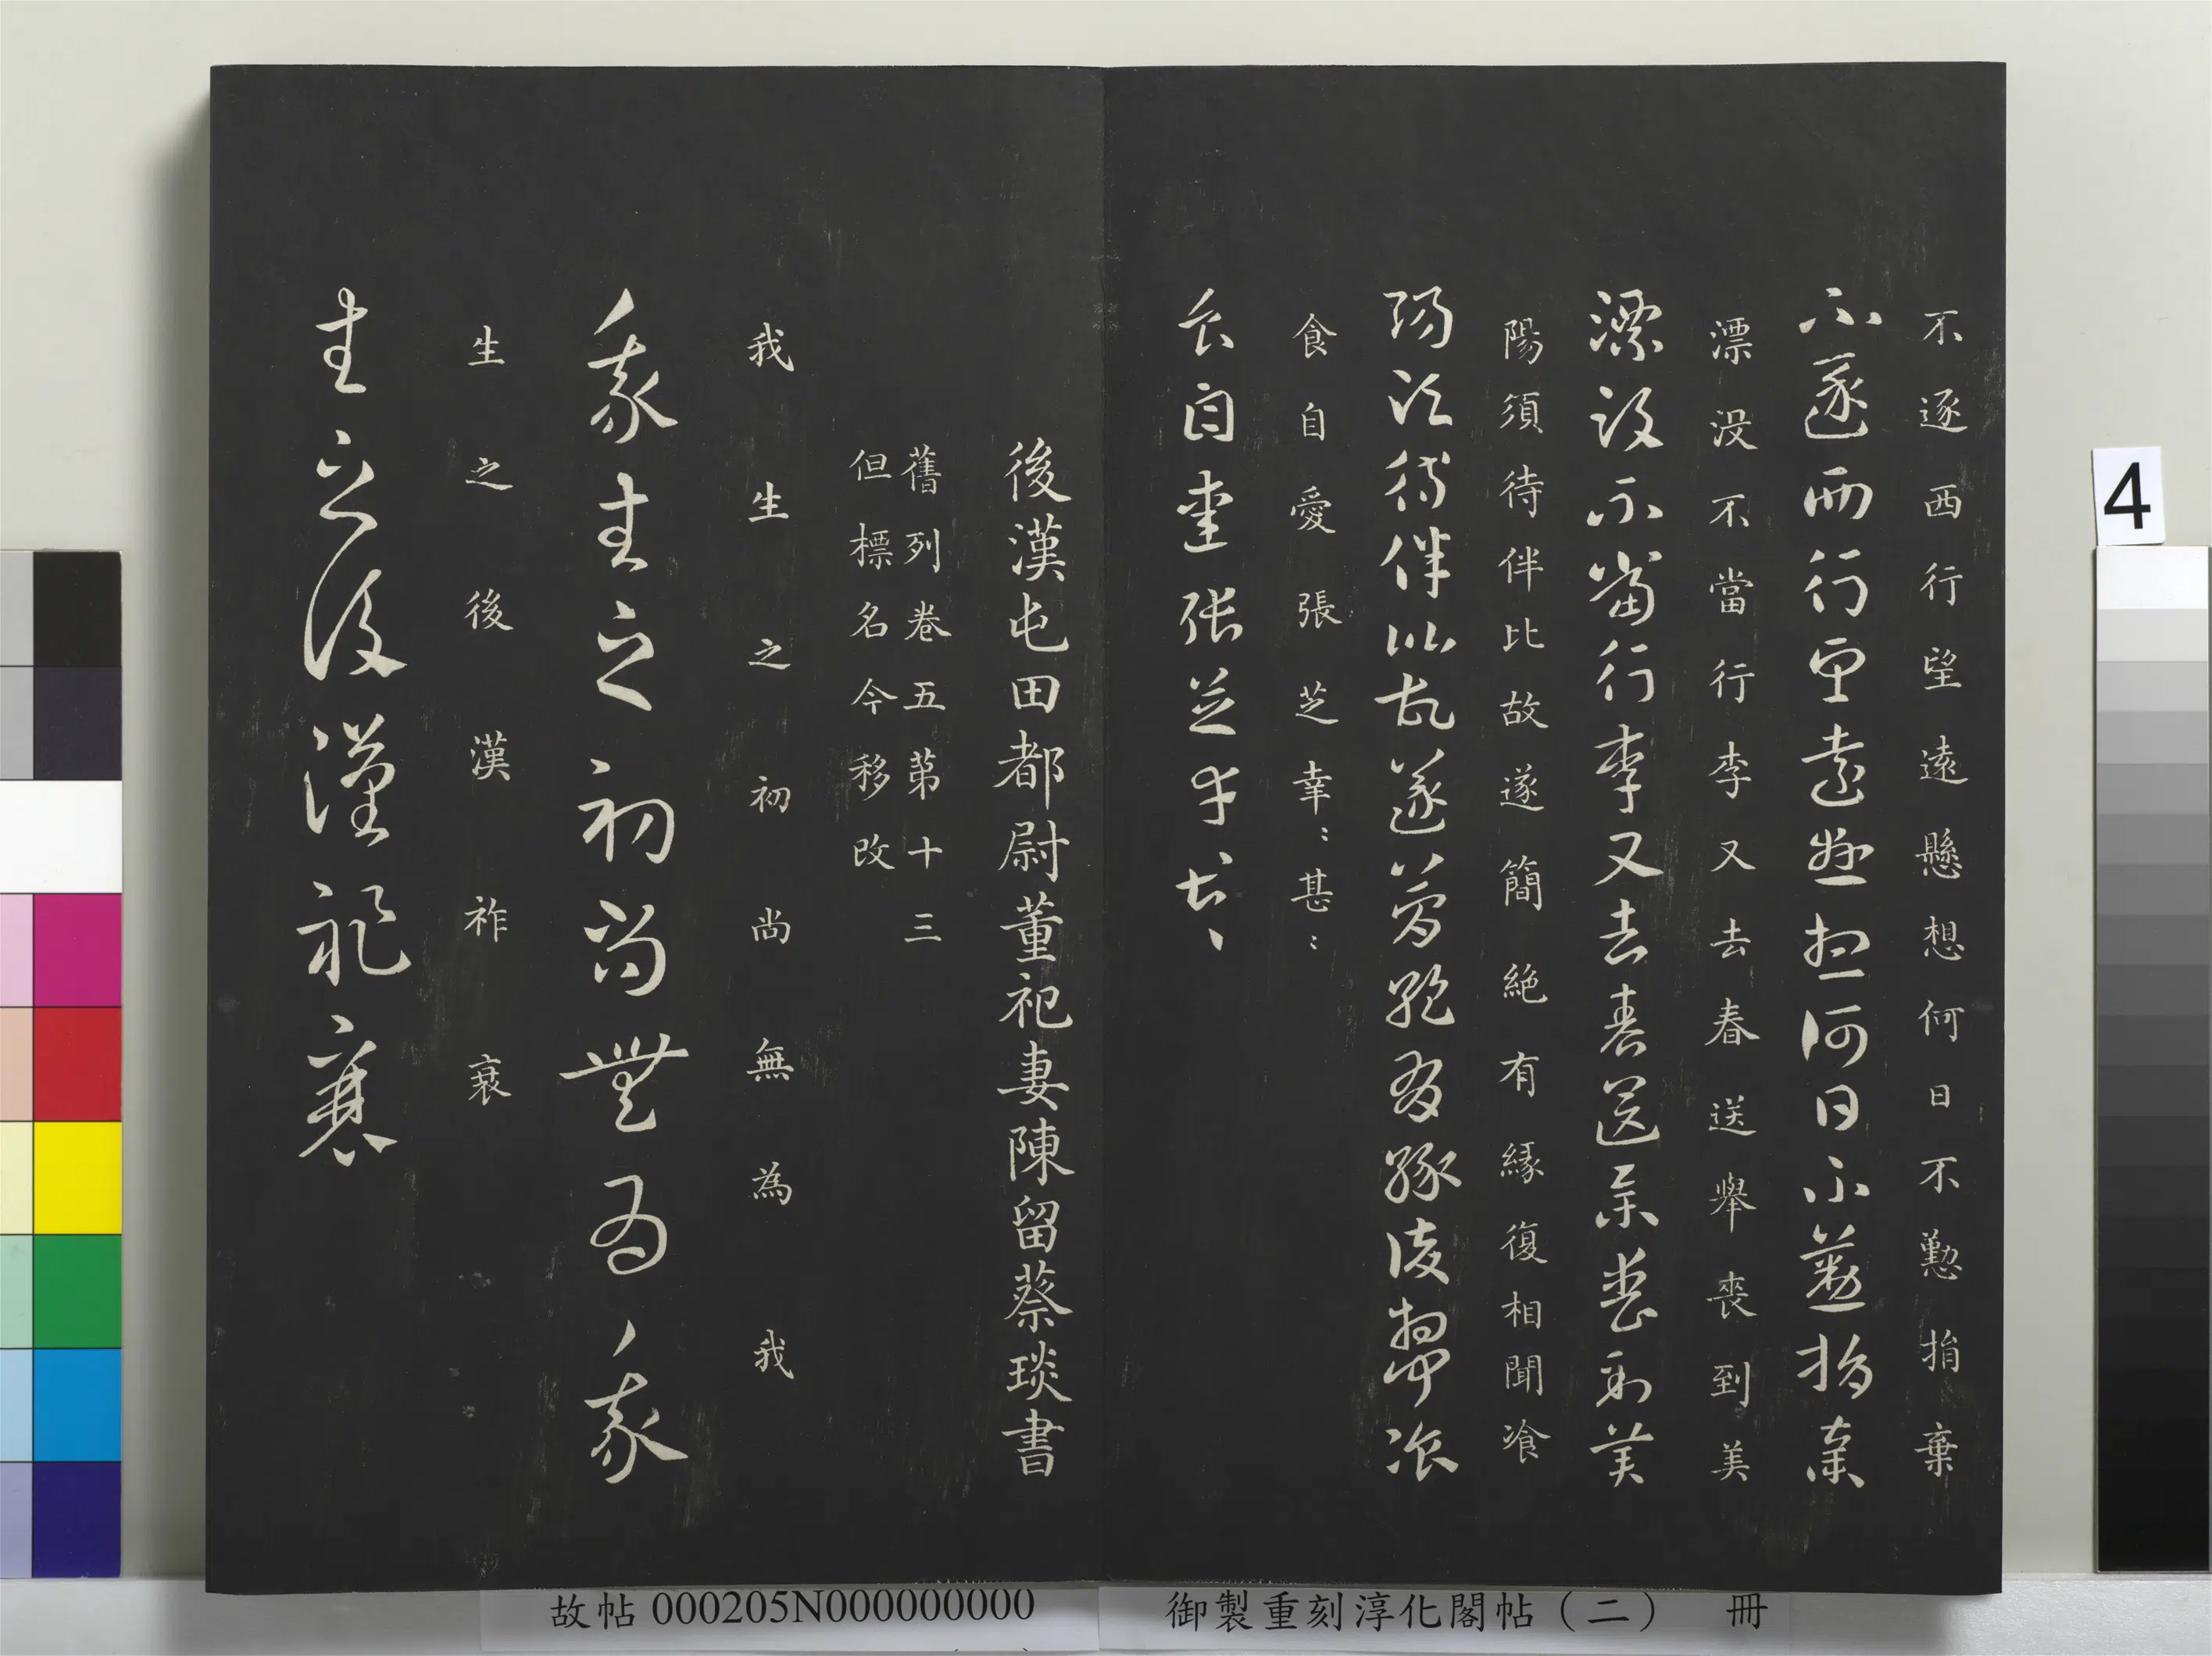 不逐西行望遠懸想何日不懃捐棄
不逐西行望遠懸想何日不懃捐棄
漂没不當行李又去春送舉喪到美
漂没不當行李又去春送舉喪到美
陽須待伴比故遂簡絶有緣復相聞飡
陽須待伴比故遂簡絶有緣復相聞飡
食自愛張芝幸：：甚：
食自愛張芝幸甚、
後漢屯田都尉董祀妻陳留蔡琰書
舊列卷五第十三
但標名今移改
我生之初尚無為我
我生之初尚無為我
生之後漢祚衰
生之後漢祚衰
4
故帖 000205N000000000
御製重刻淳化閣帖（二） 冊